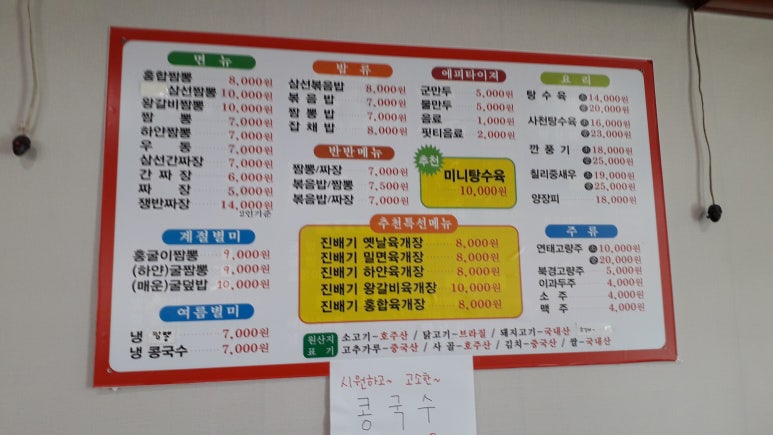 면 뉴
홍합짬뽕 8,000원
삼선짬뽕 10,000원
왕갈비짬뽕 10,000원
짬 뽕 7,000원
하얀짬뽕 7,000원
우 동 7,000원
삼선간짜장 7,000원
간 짜 장 6,000원
짜 장 5,000원
쟁반짜장 14,000원
2인기준
계절별미
홍굴이짬뽕 9,000원
(하얀)굴짬뽕 9,000원
(매운)굴덮밥 10,000원
여름별미
냉 짬뽕 7,000원
냉 콩국수 7,000원
밥 류
삼선볶음밥 8,000원
볶 음 밥 7,000원
짬 뽕 밥 7,000원
잡 채 밥 8,000원
반반메뉴
짬뽕/짜장 7,000원
볶음밥/짬뽕 7,500원
볶음밥/짜장 7,000원
에피타이저
군만두 5,000원
물만두 5,000원
음료 1,000원
핏티음료 2,000원
추천
미니탕수육
10,000원
추천특선메뉴
진배기 옛날육개장 8,000원
진배기 밀면육개장 8,000원
진배기 하얀육개장 8,000원
진배기 왕갈비육개장 10,000원
진배기 홍합육개장 8,000원
요 리
탕 수 육 소 14,000원
중 20,000원
사천탕수육 소 16,000원
중 23,000원
깐 풍 기 소 18,000원
중 25,000원
칠리중새우 소 19,000원
중 25,000원
양장피 18,000원
주 류
연태고량주 소 10,000원
중 20,000원
북경고량주 5,000원
이과두주 4,000원
소 주 4,000원
맥 주 4,000원
원산지
표 기
소고기-호주산 / 닭고기-브라질 / 돼지고기-국내산
고추가루-중국산 / 사 골-호주산 / 김치-중국산 / 쌀-국내산
시원하고~ 고소한~
콩 국 수